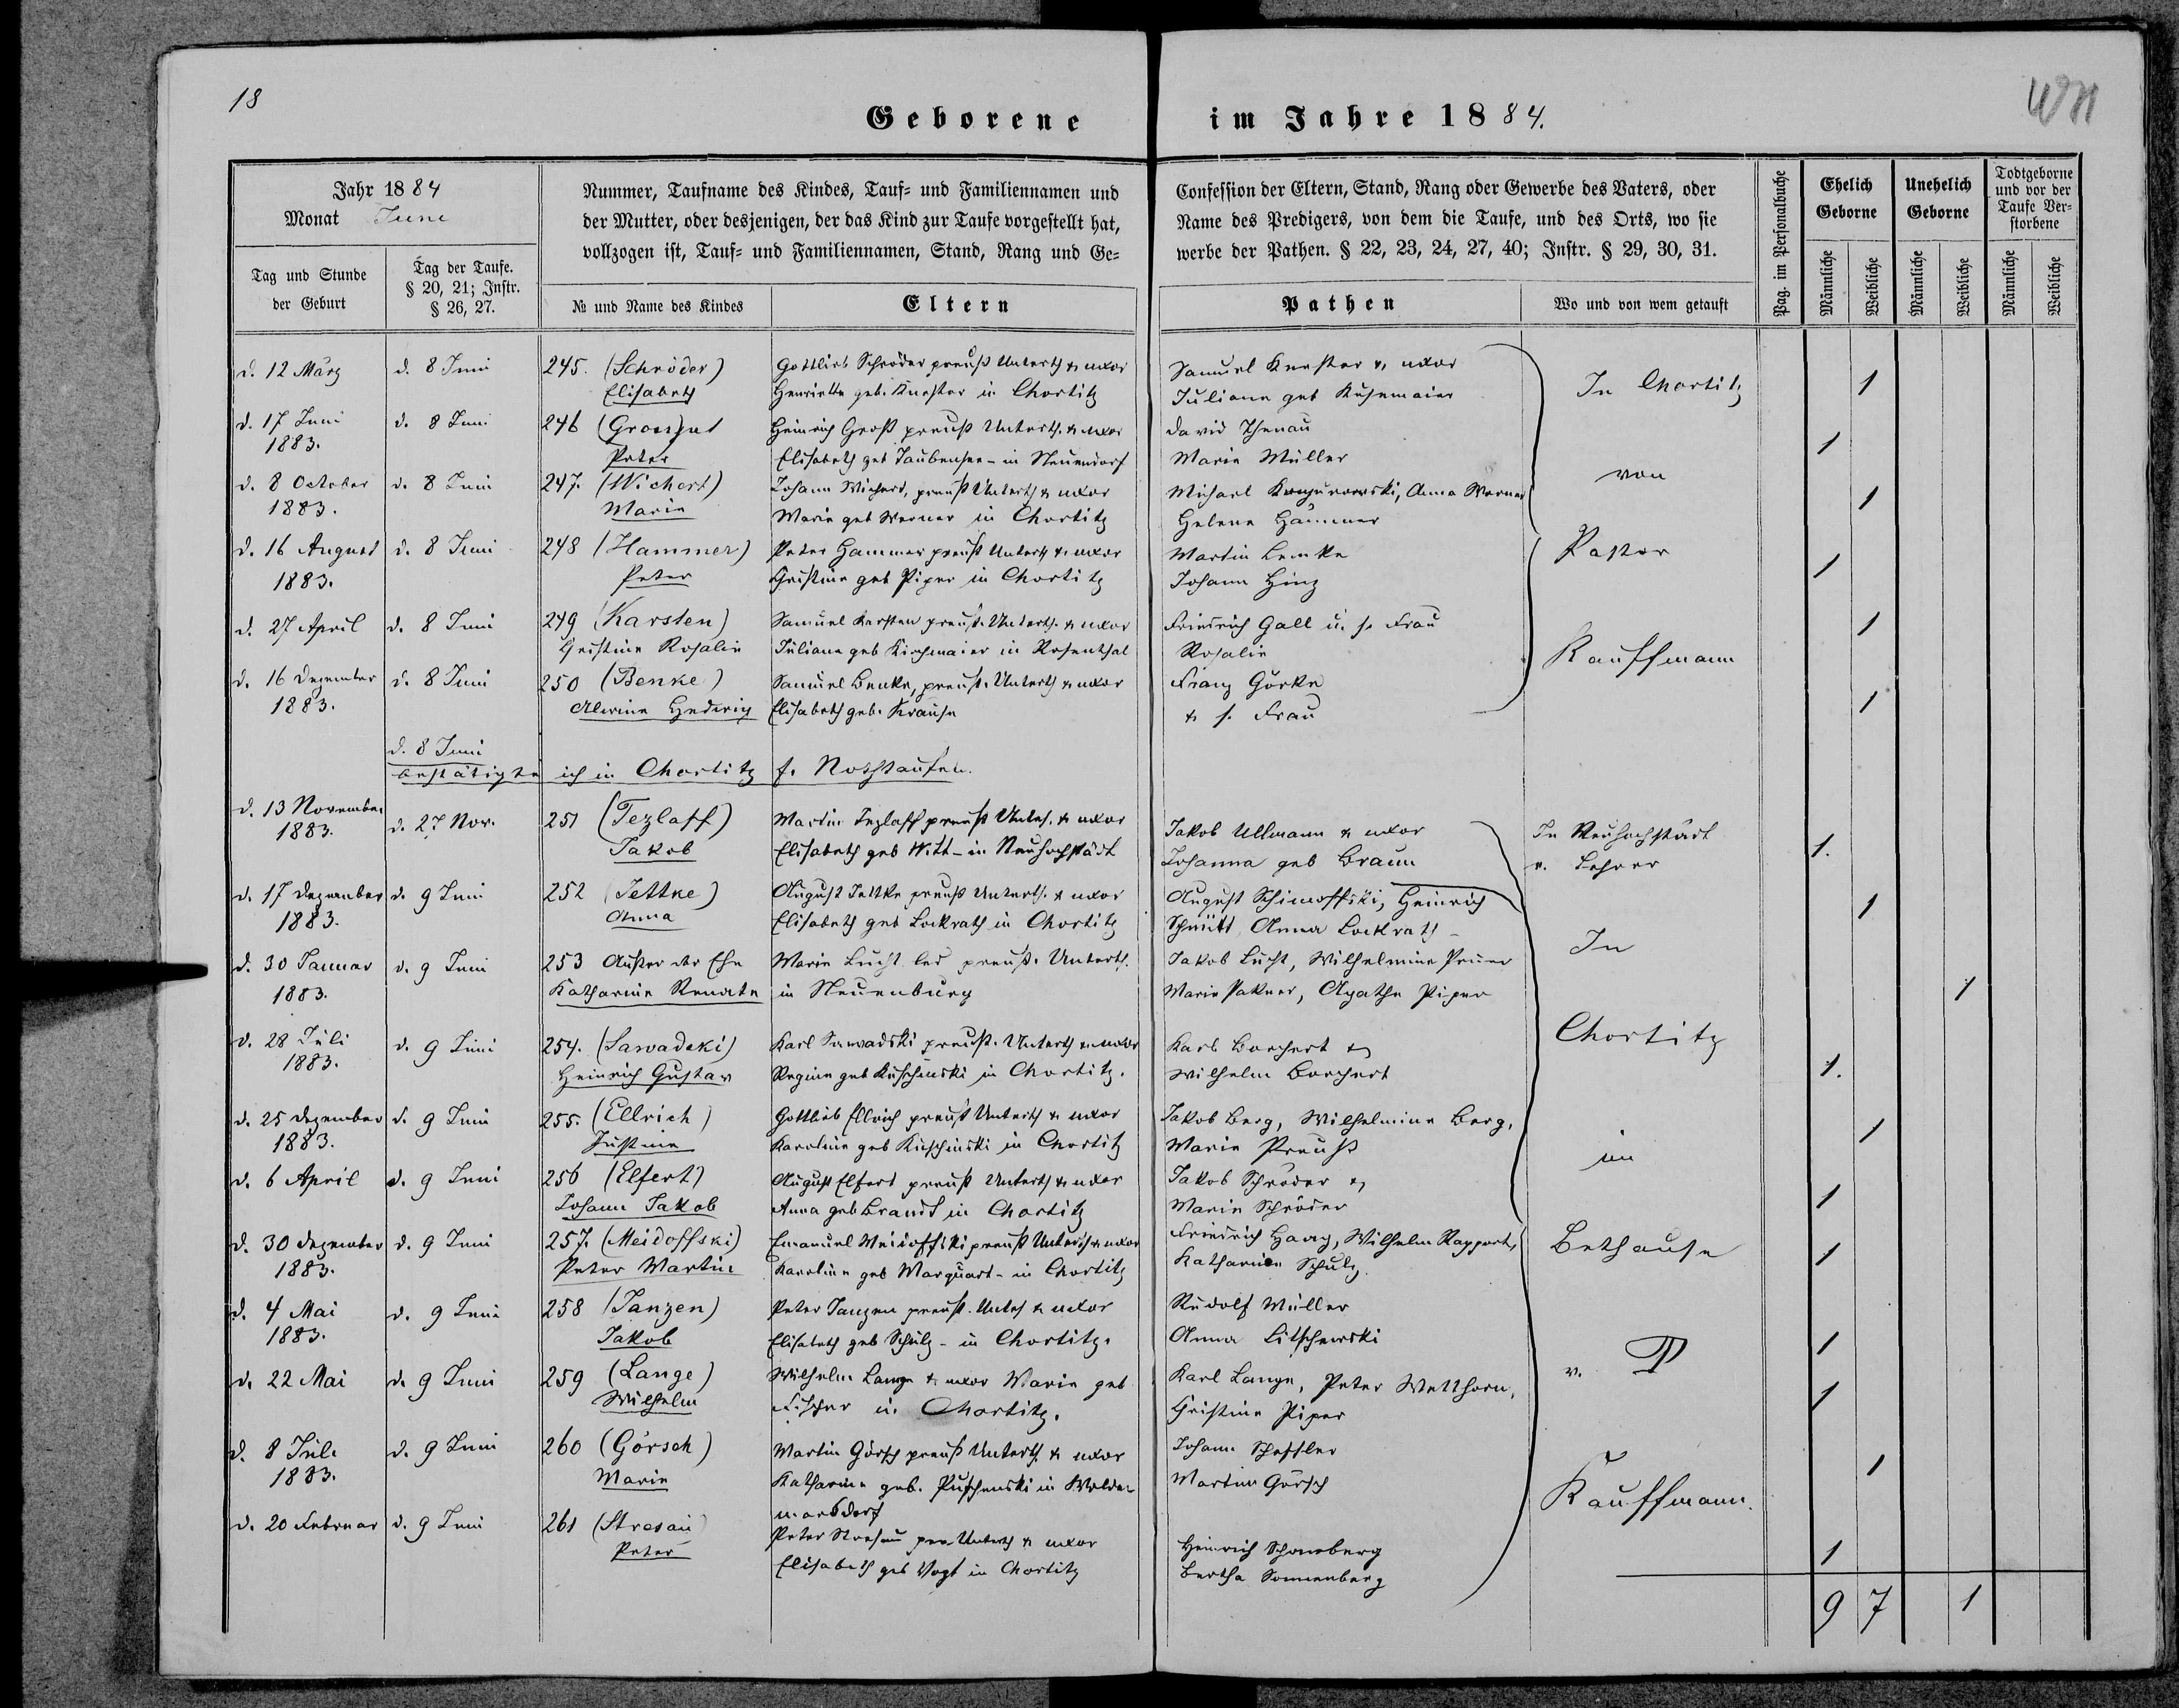 18
Geborene im Jahre 1884.
Jahr 1884
Monat Juni
Tag und Stunde der Geburt
Tag der Taufe. § 20, 21; Instr. § 26, 27.
Nummer, Taufname des Kindes, Tauf- und Familiennamen und
der Mutter, oder desjenigen, der das Kind zur Taufe vorgestellt hat,
vollzogen ist, Tauf- und Familiennamen, Stand, Rang und Ge-
№ und Name des Kindes
Eltern
Confession der Eltern, Stand, Rang oder Gewerbe des Vaters, oder
Name des Predigers, von dem die Taufe, und des Orts, wo sie
werbe der Pathen. § 22, 23, 24, 27, 40; Instr. § 29, 30, 31.
Pathen
Wo und von wem getauft
Pag. im Personalbuche
Ehelich Geborne
Unehelich Geborne
Todtgeborne und vor der Taufe Verstorbene
Männliche Weibliche Männliche Weibliche Männliche Weibliche
d. 12 März d. 8 Juni 245. (Schröder) Gottlieb Schröder preuß Unterth & uxor Samuel Knester & uxor
Elisabeth Henriette geb. Knester in Chortitz Juliane geb In Chortitz 1
d. 17 Juni d. 8 Juni 246 Heinrich Groß preuß Unterth. & uxor David
1883. Peter Elisabeth geb Taubensee - in Neuendorf Maria Müller 1
d. 8 October d. 8 Juni 247. (Wichert) Johann Wichert, preuß Unterth & uxor Michael Anna Werner von
1883. Maria Maria geb Werner in Chortitz Helena Hammer 1
d. 16 August d. 8 Juni 248 (Hammer) Peter Hammer preuß Unterth & uxor Martin Lemke Pastor
1883. Peter Christine geb Piper in Chortitz Johann Hinz 1
d. 27 April d. 8 Juni 249 (Karsten) Samuel Karsten preuß. Unterth. & uxor Friedrich Gall u. s. Frau 1
Christine Rosalie Juliane geb Kirchmaier in Rosenthal Rosalie Kauffmann
d. 16 Dezember d. 8 Juni 250 (Benke) Samuel Benke, preuß. Unterth & uxor Franz Görke
1883. Alwine Hedwig Elisabeth geb. Krause & s. Frau 1
d. 8 Juni
bestätigte ich in Chortitz f. Nothtaufen.
d. 13 November d. 27 Nov. 251 (Tezlaff) Martin Tezlaff preuß Unter. & uxor Jakob Ullmann & uxor In Neuhochstädt
1883. Jakob Elisabeth geb Witt - in Neuhochstädt Johanna geb Braun v. Lehrer 1.
d. 17 Dezember d. 9 Juni 252 (Jettke) August Jettke preuß Unterth. & uxor August Schimoffski, Heinrich
1883. Anna Elisabeth geb Lockrath in Chortitz Schmitt Anna Lockrath - 1
d. 30 Januar d. 9 Juni 253 Außer der Ehe Maria Lucht led preuß. Unterth. Jakob Lucht, Wilhelmine In
1883. Katharine Renate in Neuenburg Maria Agathe Piper 1
d. 28 Juli d. 9 Juni 254. (Sawadski) Karl Sawadski preuß. Unterth & uxor Karl Borchert & Chortitz
1883. Heinrich Gustav Regine geb Kuschinski in Chortitz. Wilhelm Borchert 1.
d. 25 Dezember d. 9 Juni 255. (Ellrich) Gottlieb Ellrich preuß Unterth & uxor Jakob Berg, Wilhelmine Berg,
1883. Justine Karoline geb Kuschinski in Chortitz Maria Preuß im 1
d. 6 April d. 9 Juni 256 (Elfert) August Elfert preuß Unterth & uxor Jakob Schröder &
Johann Jakob Anna geb Brandt in Chortitz Maria Schröder 1
d. 30 Dezember d. 9 Juni 257. (Meidoffski) Emanuel Meidoffski preuß Unterth & uxor Friedrich Haag, Wilhelm Rapport, Bethause
1883. Peter Martin Karoline geb Marquart - in Chortitz Katharina Schulz 1
d. 4 Mai d. 9 Juni 258 (Janzen) Peter Janzen preuß. Unter & uxor Rudolf Müller
1883. Jakob Elisabeth geb Schulz - in Chortitz. Anna Litschewski 1
d. 22 Mai d. 9 Juni 259 (Lange) Wilhelm Lange & uxor Maria geb Karl Lange, Peter Wetthorn, v. P
Wilhelm Fischer in Chortitz. Christine Piper 1
d. 8 Juli d. 9 Juni 260 (Görsch) Martin Görsch preuß Unterth & uxor Johann Scheffler
1883. Maria Katharina geb. Puschenski in Wolde- Martin Görsch 1
marsdorf Kauffmann.
d. 20 Februar d. 9 Juni 261 (Stresau) Peter Stresau pre. Unterth & uxor Heinrich Schomberg
Peter Elisabeth geb Vogt in Chortitz Bertha Sonnenberg 1
9 7 1